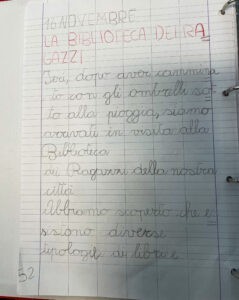 16 NOVEMBRE
LA BIBLIOTECA DEI RA
GAZZI
Ieri, dopo aver cammina
to con gli ombrelli sot
to alla pioggia, siamo
arrivati in visita alla
Biblioteca
dei Ragazzi della nostra
città.
Abbiamo scoperto che e
sistono diverse
tipologie di libri e
52